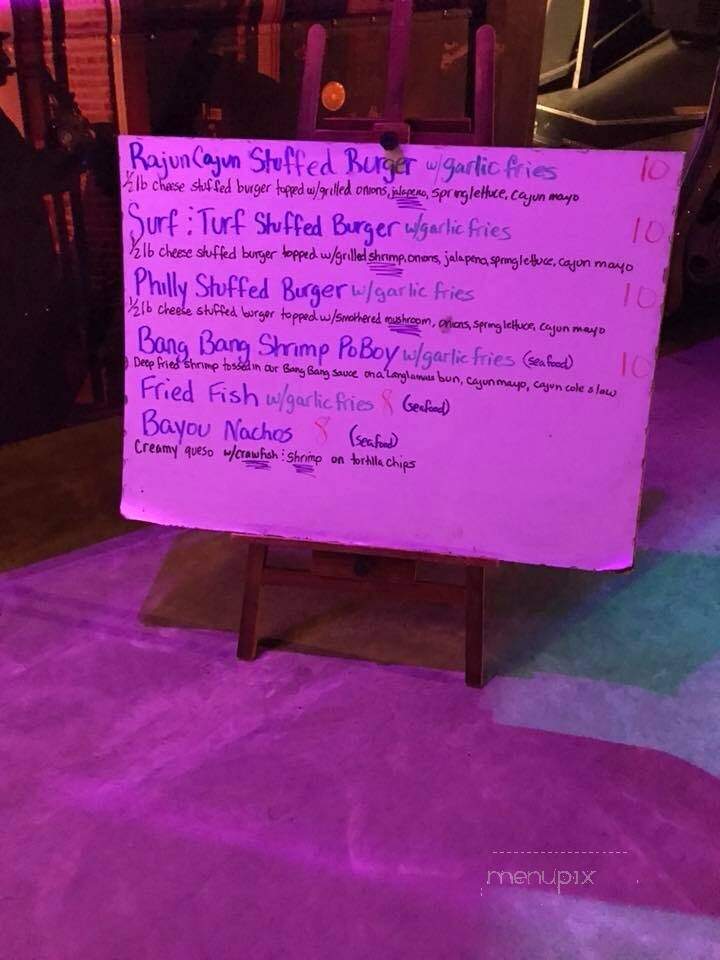 Rajun Cajun Stuffed Burger w/garlic fries 10
½ lb cheese stuffed burger topped w/grilled onions, jalapeno, spring lettuce, cajun mayo
Surf : Turf Stuffed Burger w/garlic fries 10
½ lb cheese stuffed burger topped w/grilled shrimp, onions, jalapeno, spring lettuce, cajun mayo
Philly Stuffed Burger w/garlic fries 10
½ lb cheese stuffed burger topped w/smothered mushroom, onions, spring lettuce, cajun mayo
Bang Bang Shrimp PoBoy w/garlic fries (seafood) 10
Deep fried shrimp tossed in our Bang Bang sauce on a bun, cajun mayo, cajun cole slaw
Fried Fish w/garlic fries 8 (seafood)
Bayou Nachos 8 (seafood)
Creamy queso w/crawfish : shrimp on tortilla chips
menupix